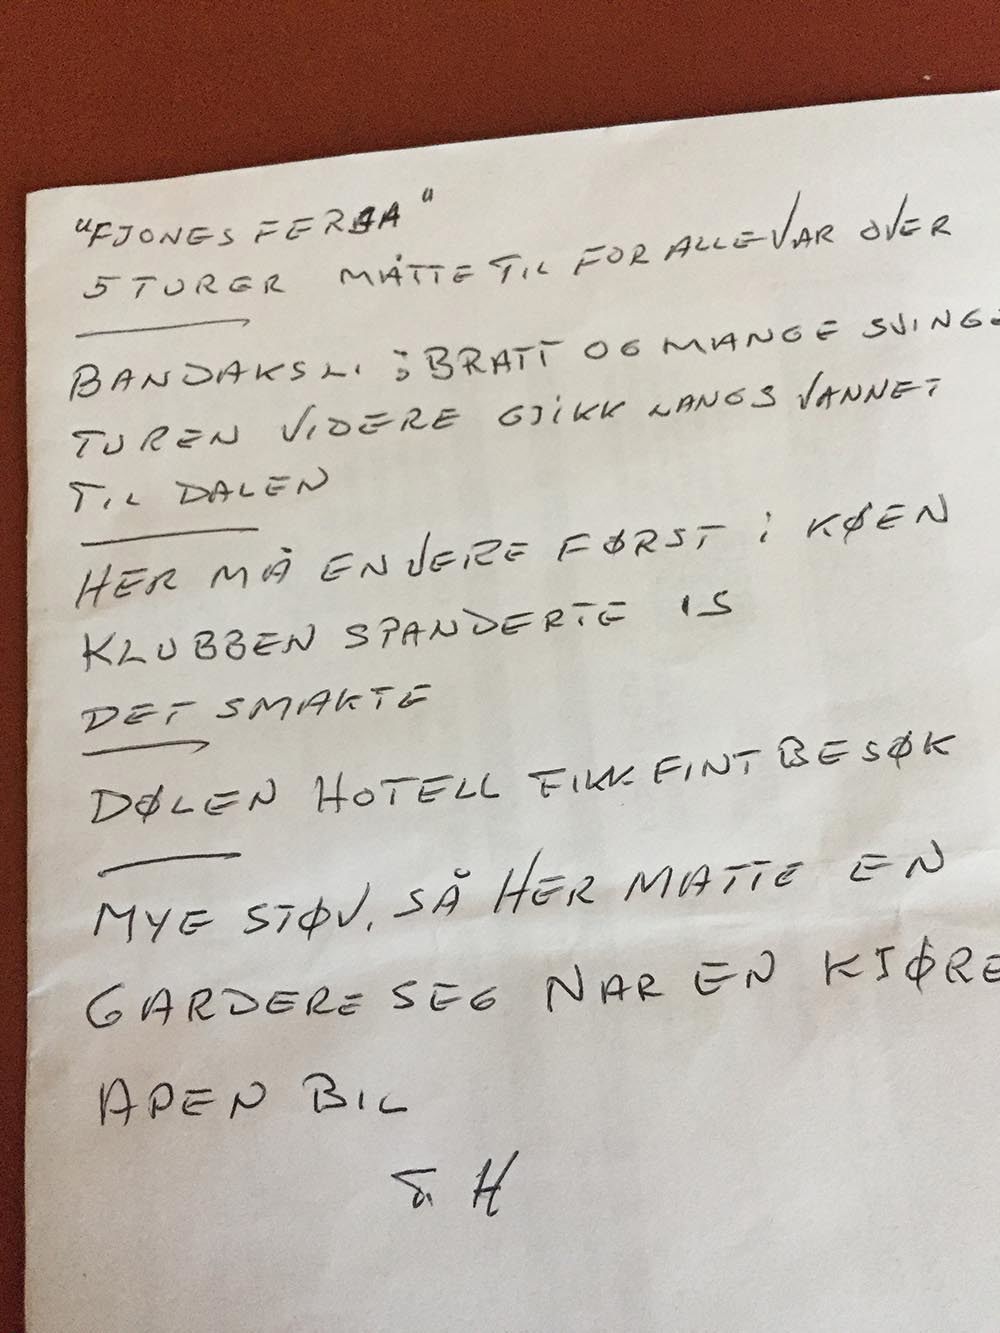 "FJONGS FERJA"
5 TURER MÅTTE TIL FOR ALLE VAR OVER
BANDAKSLI : BRATT OG MANGE SVINGE
TUREN VIDERE GJIKK LANGS VANNET
TIL DALEN
HER MÅ EN VERE FØRST i KØEN
KLUBBEN SPANDERTE IS
DET SMAKTE
DØLEN HOTELL FIKK FINT BESØK
MYE STØV, SÅ HER MATTE EN
GARDERE SEG NAR EN KJØRE
APEN BIL